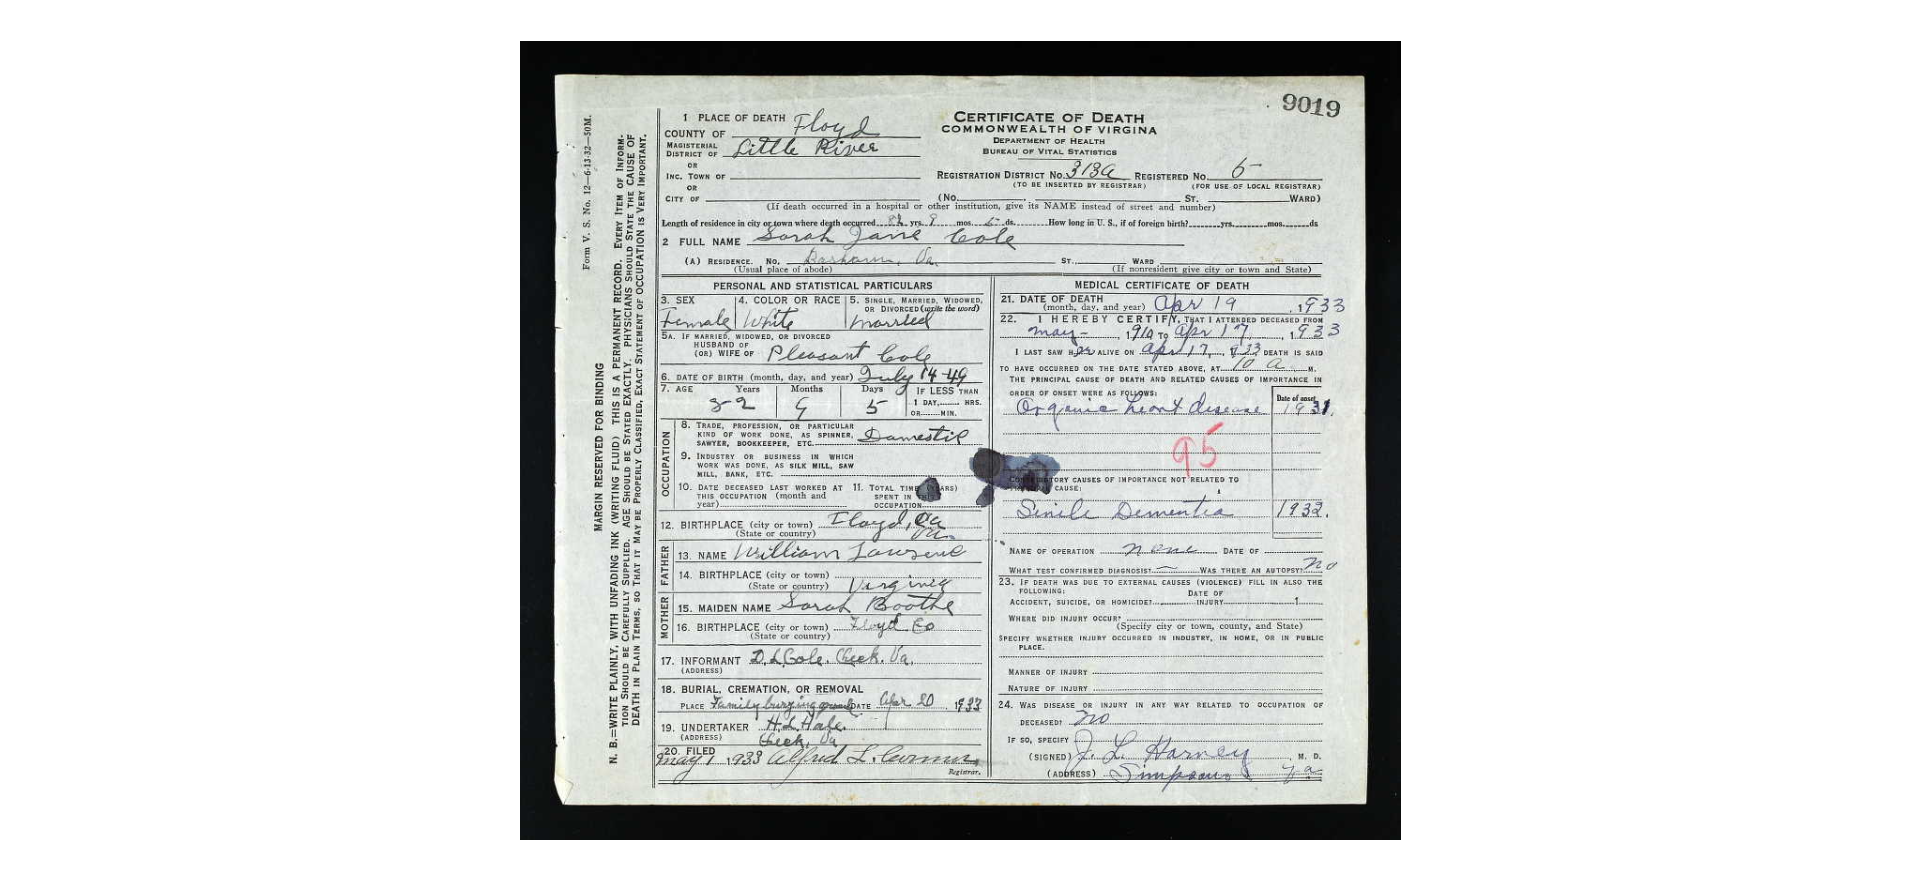 9019
Form V. S. No. 12—6-13-32—50M.
MARGIN RESERVED FOR BINDING
N. B.—WRITE PLAINLY, WITH UNFADING INK (WRITING FLUID) THIS IS A PERMANENT RECORD. EVERY ITEM OF INFORM-
TION SHOULD BE CAREFULLY SUPPLIED. AGE SHOULD BE STATED EXACTLY. PHYSICIANS SHOULD STATE THE CAUSE OF
DEATH IN PLAIN TERMS, SO THAT IT MAY BE PROPERLY CLASSIFIED. EXACT STATEMENT OF OCCUPATION IS VERY IMPORTANT.
1 PLACE OF DEATH
COUNTY OF Floyd
MAGISTERIAL DISTRICT OF Little River
OR
INC. TOWN OF
OR
CITY OF
CERTIFICATE OF DEATH
COMMONWEALTH OF VIRGINA
DEPARTMENT OF HEALTH
BUREAU OF VITAL STATISTICS
REGISTRATION DISTRICT NO. 313A REGISTERED NO. 5
(TO BE INSERTED BY REGISTRAR) (FOR USE OF LOCAL REGISTRAR)
(No. ST. WARD)
(If death occurred in a hospital or other institution, give its NAME instead of street and number)
Length of residence in city or town where death occurred 82 yrs. 9 mos. 5 ds. How long in U. S., if of foreign birth? yrs. mos. ds
2 FULL NAME Sarah Jane Cole
(A) RESIDENCE. No. Va. ST. WARD
(Usual place of abode) (If nonresident give city or town and State)
PERSONAL AND STATISTICAL PARTICULARS
3. SEX Female
4. COLOR OR RACE White
5. SINGLE, MARRIED, WIDOWED, OR DIVORCED (write the word) Married
5A. IF MARRIED, WIDOWED, OR DIVORCED
HUSBAND OF
(OR) WIFE OF Pleasant Cole
6. DATE OF BIRTH (month, day, and year) July 14-49
7. AGE Years Months Days IF LESS THAN
82 9 5 1 DAY, HRS.
OR MIN.
OCCUPATION
8. TRADE, PROFESSION, OR PARTICULAR
KIND OF WORK DONE, AS SPINNER,
SAWYER, BOOKKEEPER, ETC. Domestic
9. INDUSTRY OR BUSINESS IN WHICH
WORK WAS DONE, AS SILK MILL, SAW
MILL, BANK, ETC.
10. DATE DECEASED LAST WORKED AT
THIS OCCUPATION (month and
year)
11. TOTAL TIME (YEARS)
SPENT IN THIS
OCCUPATION
12. BIRTHPLACE (city or town) Floyd, Co
(State or country) Va.
FATHER
13. NAME William
14. BIRTHPLACE (city or town)
(State or country) Virginia
MOTHER
15. MAIDEN NAME Sarah Boothe
16. BIRTHPLACE (city or town) Floyd Co
(State or country)
17. INFORMANT D. L. Cole. Check. Va.
(ADDRESS)
18. BURIAL, CREMATION, OR REMOVAL
PLACE Family burying ground DATE Apr 20, 1933
19. UNDERTAKER H. L. Hale.
(ADDRESS) Check, Va
20. FILED
May 1, 1933 Alfred L.
Registrar.
MEDICAL CERTIFICATE OF DEATH
21. DATE OF DEATH
(month, day, and year) Apr 19, 1933
22. I HEREBY CERTIFY, THAT I ATTENDED DECEASED FROM
May – , 1910 TO Apr 17, 1933
I LAST SAW HER ALIVE ON Apr 17, 1933 DEATH IS SAID
TO HAVE OCCURRED ON THE DATE STATED ABOVE, AT 10 a M.
THE PRINCIPAL CAUSE OF DEATH AND RELATED CAUSES OF IMPORTANCE IN
ORDER OF ONSET WERE AS FOLLOWS: Date of onset
Organic heart disease 1931.
95
CONTRIBUTORY CAUSES OF IMPORTANCE NOT RELATED TO
CAUSE:
Senile Dementia 1932.
NAME OF OPERATION none DATE OF
WHAT TEST CONFIRMED DIAGNOSIS? — WAS THERE AN AUTOPSY? No
23. IF DEATH WAS DUE TO EXTERNAL CAUSES (VIOLENCE) FILL IN ALSO THE
FOLLOWING:
ACCIDENT, SUICIDE, OR HOMICIDE? DATE OF INJURY 1
WHERE DID INJURY OCCUR?
(Specify city or town, county, and State)
SPECIFY WHETHER INJURY OCCURRED IN INDUSTRY, IN HOME, OR IN PUBLIC
PLACE.
MANNER OF INJURY
NATURE OF INJURY
24. WAS DISEASE OR INJURY IN ANY WAY RELATED TO OCCUPATION OF
DECEASED? No
IF SO, SPECIFY
(SIGNED) J. L. Harvey M. D.
(ADDRESS) Simpsons Va